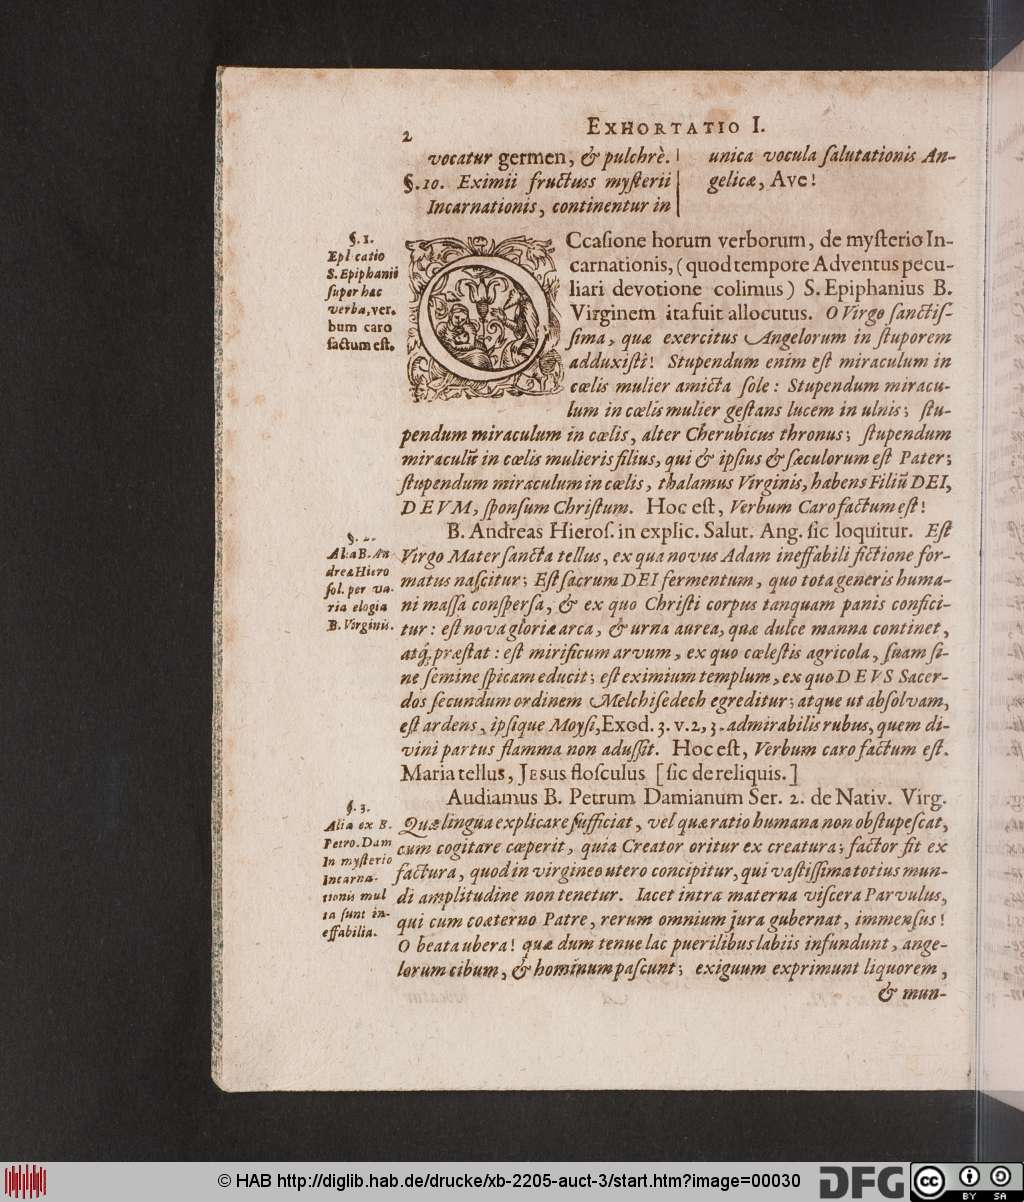 2
EXHORTATIO I.
vocatur germen, & pulchrè.
§.10. Eximii fructuss mysterii
Incarnationis, continentur in
unica vocula salutationis An-
gelicæ, Ave!
§. 1.
Epl catio
S. Epiphanii
super hæc
verba, ver.
bum caro
factum est.
OCcasione horum verborum, de mysterio In-
carnationis, (quod tempore Adventus pecu-
liari devotione colimus) S. Epiphanius B.
Virginem ita fuit allocutus. O Virgo sanctis-
sima, quæ exercitus Angelorum in stuporem
adduxisti! Stupendum enim est miraculum in
cœlis mulier amicta sole: Stupendum miracu-
lum in cœlis mulier gestans lucem in ulnis; stu-
pendum miraculum in cœlis, alter Cherubicus thronus; stupendum
miraculũ in cœlis mulieris filius, qui & ipsius & sæculorum est Pater;
stupendum miraculum in cœlis, thalamus Virginis, habens Filiũ DEI,
DEVM, sponsum Christum. Hoc est, Verbum Caro factum est!
§. 2.
Alia B. An
dreæ Hiero
sol. per va-
ria elogia
B. Virginis.
B. Andreas Hieros. in explic. Salut. Ang. sic loquitur. Est
Virgo Mater sancta tellus, ex qua novus Adam ineffabili fictione for-
matus nascitur; Est sacrum DEI fermentum, quo tota generis huma-
ni massa conspersa, & ex quo Christi corpus tanquam panis confici-
tur: est nova gloriæ arca, & urna aurea, quæ dulce manna continet,
atq; præstat: est mirificum arvum, ex quo cœlestis agricola, suam si-
ne semine spicam educit; est eximium templum, ex quo DEVS Sacer-
dos secundum ordinem Melchisedech egreditur; atque ut absolvam,
est ardens, ipsique Moysi, Exod. 3. v. 2, 3. admirabilis rubus, quem di-
vini partus flamma non adussit. Hoc est, Verbum caro factum est.
Maria tellus, JESUS flosculus [sic de reliquis.]
§. 3.
Alia ex B.
Petro. Dam
In mysterio
Incarna-
tionis mul
ta sunt in-
effabilia.
Audiamus B. Petrum Damianum Ser. 2. de Nativ. Virg.
Quæ lingua explicare sufficiat, vel quæ ratio humana non obstupescat,
cum cogitare cœperit, quia Creator oritur ex creatura; factor fit ex
factura, quod in virgineo utero concipitur, qui vastissima totius mun-
di amplitudine non tenetur. Iacet intra materna viscera Parvulus,
qui cum coæterno Patre, rerum omnium jura gubernat, immensus!
O beata ubera! quæ dum tenue lac puerilibus labiis infundunt, ange-
lorum cibum, & hominum pascunt; exiguum exprimunt liquorem,
& mun-
© HAB http://diglib.hab.de/drucke/xb-2205-auct-3/start.htm?image=00030
DFG
cc
BY
SA